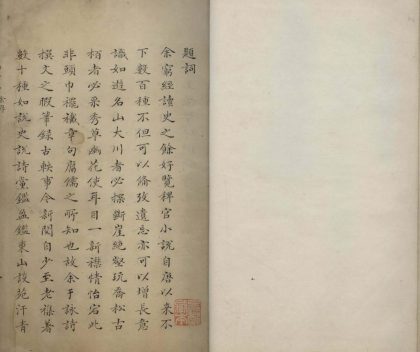 題詞
余窮經讀史之餘好覽稗官小說自唐以來不
下數百種不但可以備攷遺忘亦可以增長意
識如遊名山大川者必探斷崖絕壑玩喬松古
栢者必采秀草幽花使耳目一新襟情怡宕此
非頭巾䙀襶章句腐儒之所知也故余于詠詩
撰文之暇筆錄古軼事今新聞自少至老襍著
數十種如說史說詩黨鑑盈鑑東山談苑汗青